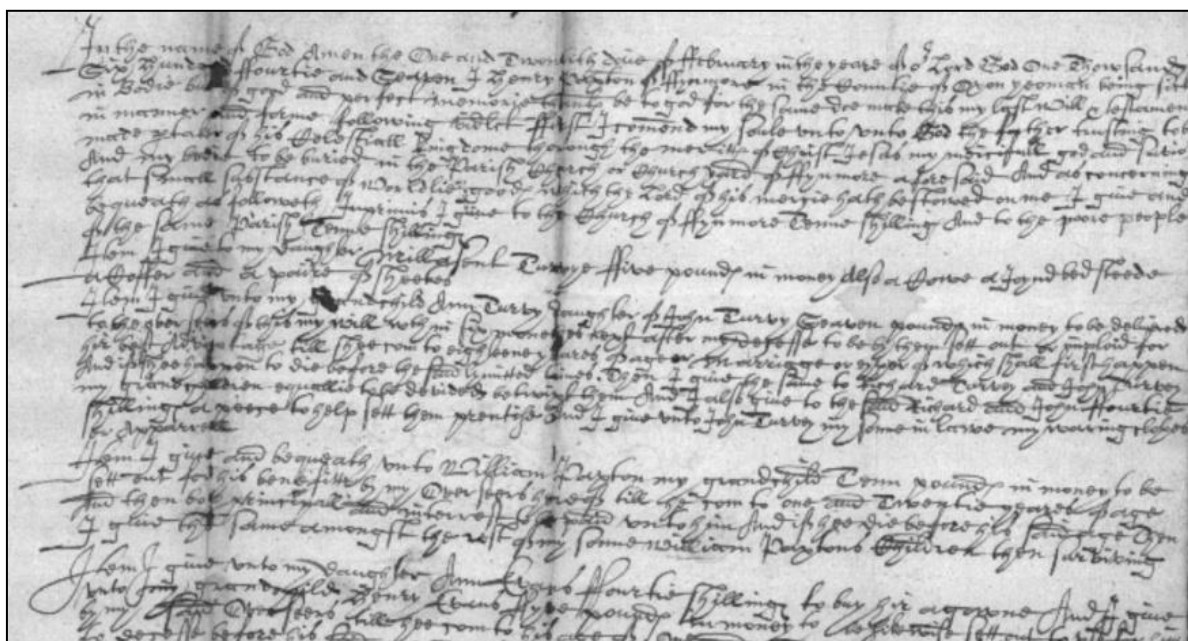 In the name of God Amen the One and Twentith daie of ffebruary in the yeare of or Lord God One Thowsand
Six Hundred ffourtie and Seaven I Henry Paxton of ffynmore in the Countie of Oxon yeoman being sick
in Bodie but of good and perfect memorie thanks be to god for the same doe make this my last Will & testament
in manner and forme following vidlct ffirst I comend my soule unto unto God the father trusting to be
made ptaker of his Celestiall kingdome thorough the merits of Christ Jesus my god and
And my bodie to be buried in the Parish Church or Church yard of ffynmore aforesaid And as concerning
that small substance of Worldlie goods which the Lord of his mercie hath bestowed on me I give and
bequeath as followeth Inprimis I give to the Church of ffynmore Tenne shillings And to the poore people
of the same Parish Tenne shillings
Item I give to my daughter Turvye ffive pounds in money Also a Cowe a Joyned bedsteede
a Coffer and a paire of sheetes
Item I give unto my grandchild Ann Turvy daughter of John Turvy Seaven pounds in money to be delivered
to the overseers of this my will wthin six monethes next after my decesse to be by them sett out or imploid for
hir best Advantage till shee com to eighteene yeares of age or marriage or either of which shall first happen
And if shee happen to die before the said limitted times Then I give the same to Richard Turvey and John Turvey
my grandchilderen equallie to be devided betwixt them And I also give to the said Richard and John ffourtie
shillings a peece to help sett them prentize And I give unto John Turvy my sonne in lawe my waring clothes
or Apparrell
Item I give and bequeath unto William Paxton my grandchild Tenn pounds in money to be
sett out for his benefitt by my Overseers hereof till hee com to one and Twentie yeares of age
And then both principall and interrest to be paid unto him And if hee die before his said age Then
I give the same amongst the rest of my sonne William Paxtons Children then surviving
Item I give unto my daughter Ann Evans ffourtie shillings to buy hir a gowne And I give
unto my grandchild Henry Evans ffyve pounds in money to be sett
by my said Overseers till hee com to his age of
to decesse before his